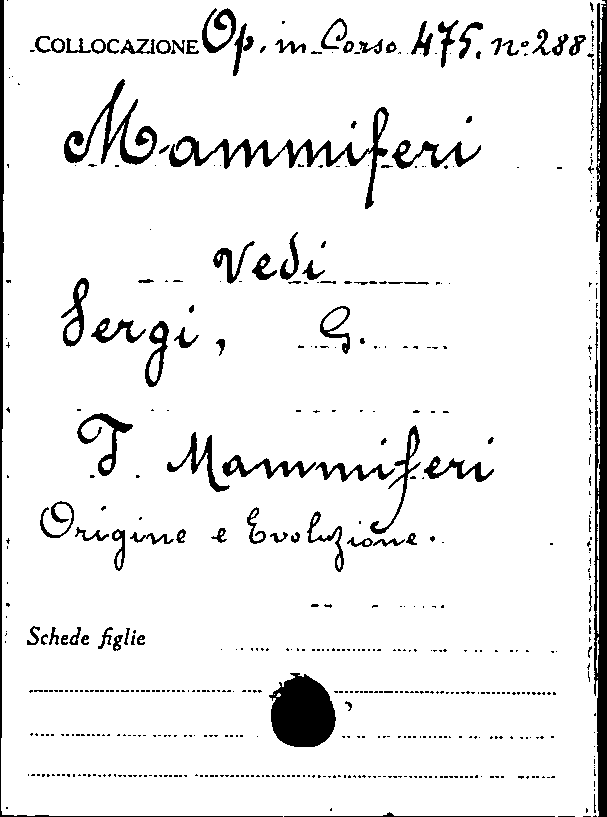 COLLOCAZIONE Op. in Corso 475. nº 288
Mammiferi
Vedi
Sergi, G.
I Mammiferi
Origine e Evoluzione.
Schede figlie